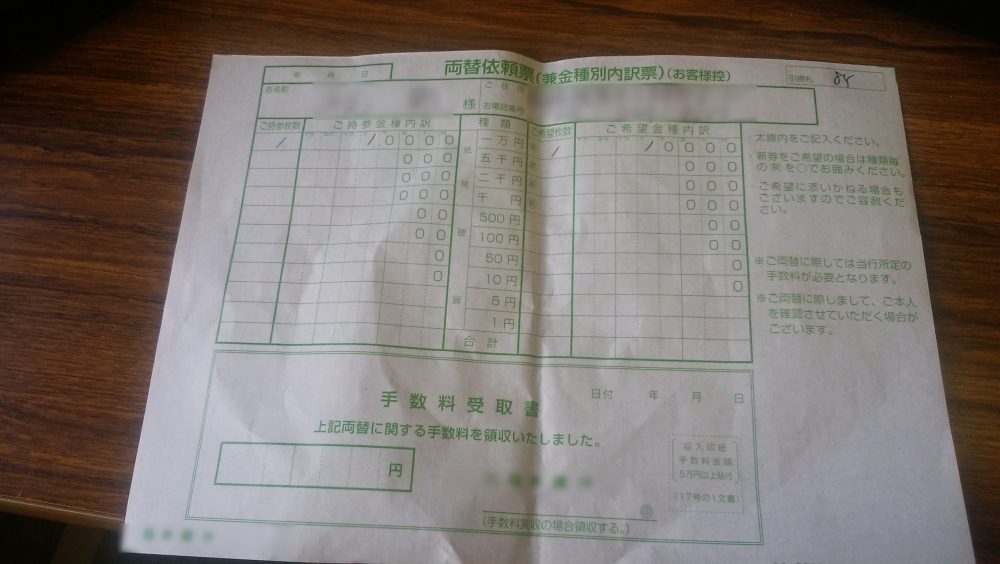 両替依頼票(兼金種別内訳票)(お客様控)
年 月 日
引換札 84
お名前 様
ご住所
お電話番号
ご持参枚数 ご持参金種内訳 種類 ご希望枚数 ご希望金種内訳
1 10000 一万円 1 10000
000 五千円 000
000 二千円 000
000 千円 000
00 500円 00
00 100円 00
0 50円 0
0 10円 0
5円
1円
合計
紙幣
硬貨
・太線内をご記入ください。
・新券をご希望の場合は種類毎
の新を○でお囲みください。
・ご希望に添いかねる場合も
ございますのでご容赦くだ
さい。
※ご両替に際しては当行所定の
手数料が必要となります。
※ご両替に際しまして、ご本人
を確認させていただく場合が
ございます。
手数料受取書
日付 年 月 日
上記両替に関する手数料を領収いたしました。
円
収入印紙
手数料金額
5万円以上貼付
(17号の1文書)
印
(手数料実収の場合領収する。)